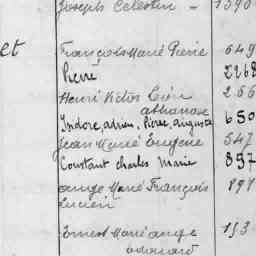 Joseph Célestin - 1390
et
François Marié Pierre 649
Pierre 2268
Henri Victor Léon 266
athanase
Isidore, adrien, Pierre, auguste 650
Jean Marie Eugène 547
Constant charles Marie 897
ange Marié François 891
Lucien
Ernest Marié ange 153
édouard